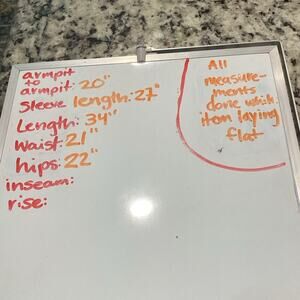 armpit
to
armpit: 20"
Sleeve length: 27"
Length: 34"
Waist: 21"
hips: 22"
inseam:
rise:
All
measure-
ments
done while
item laying
flat